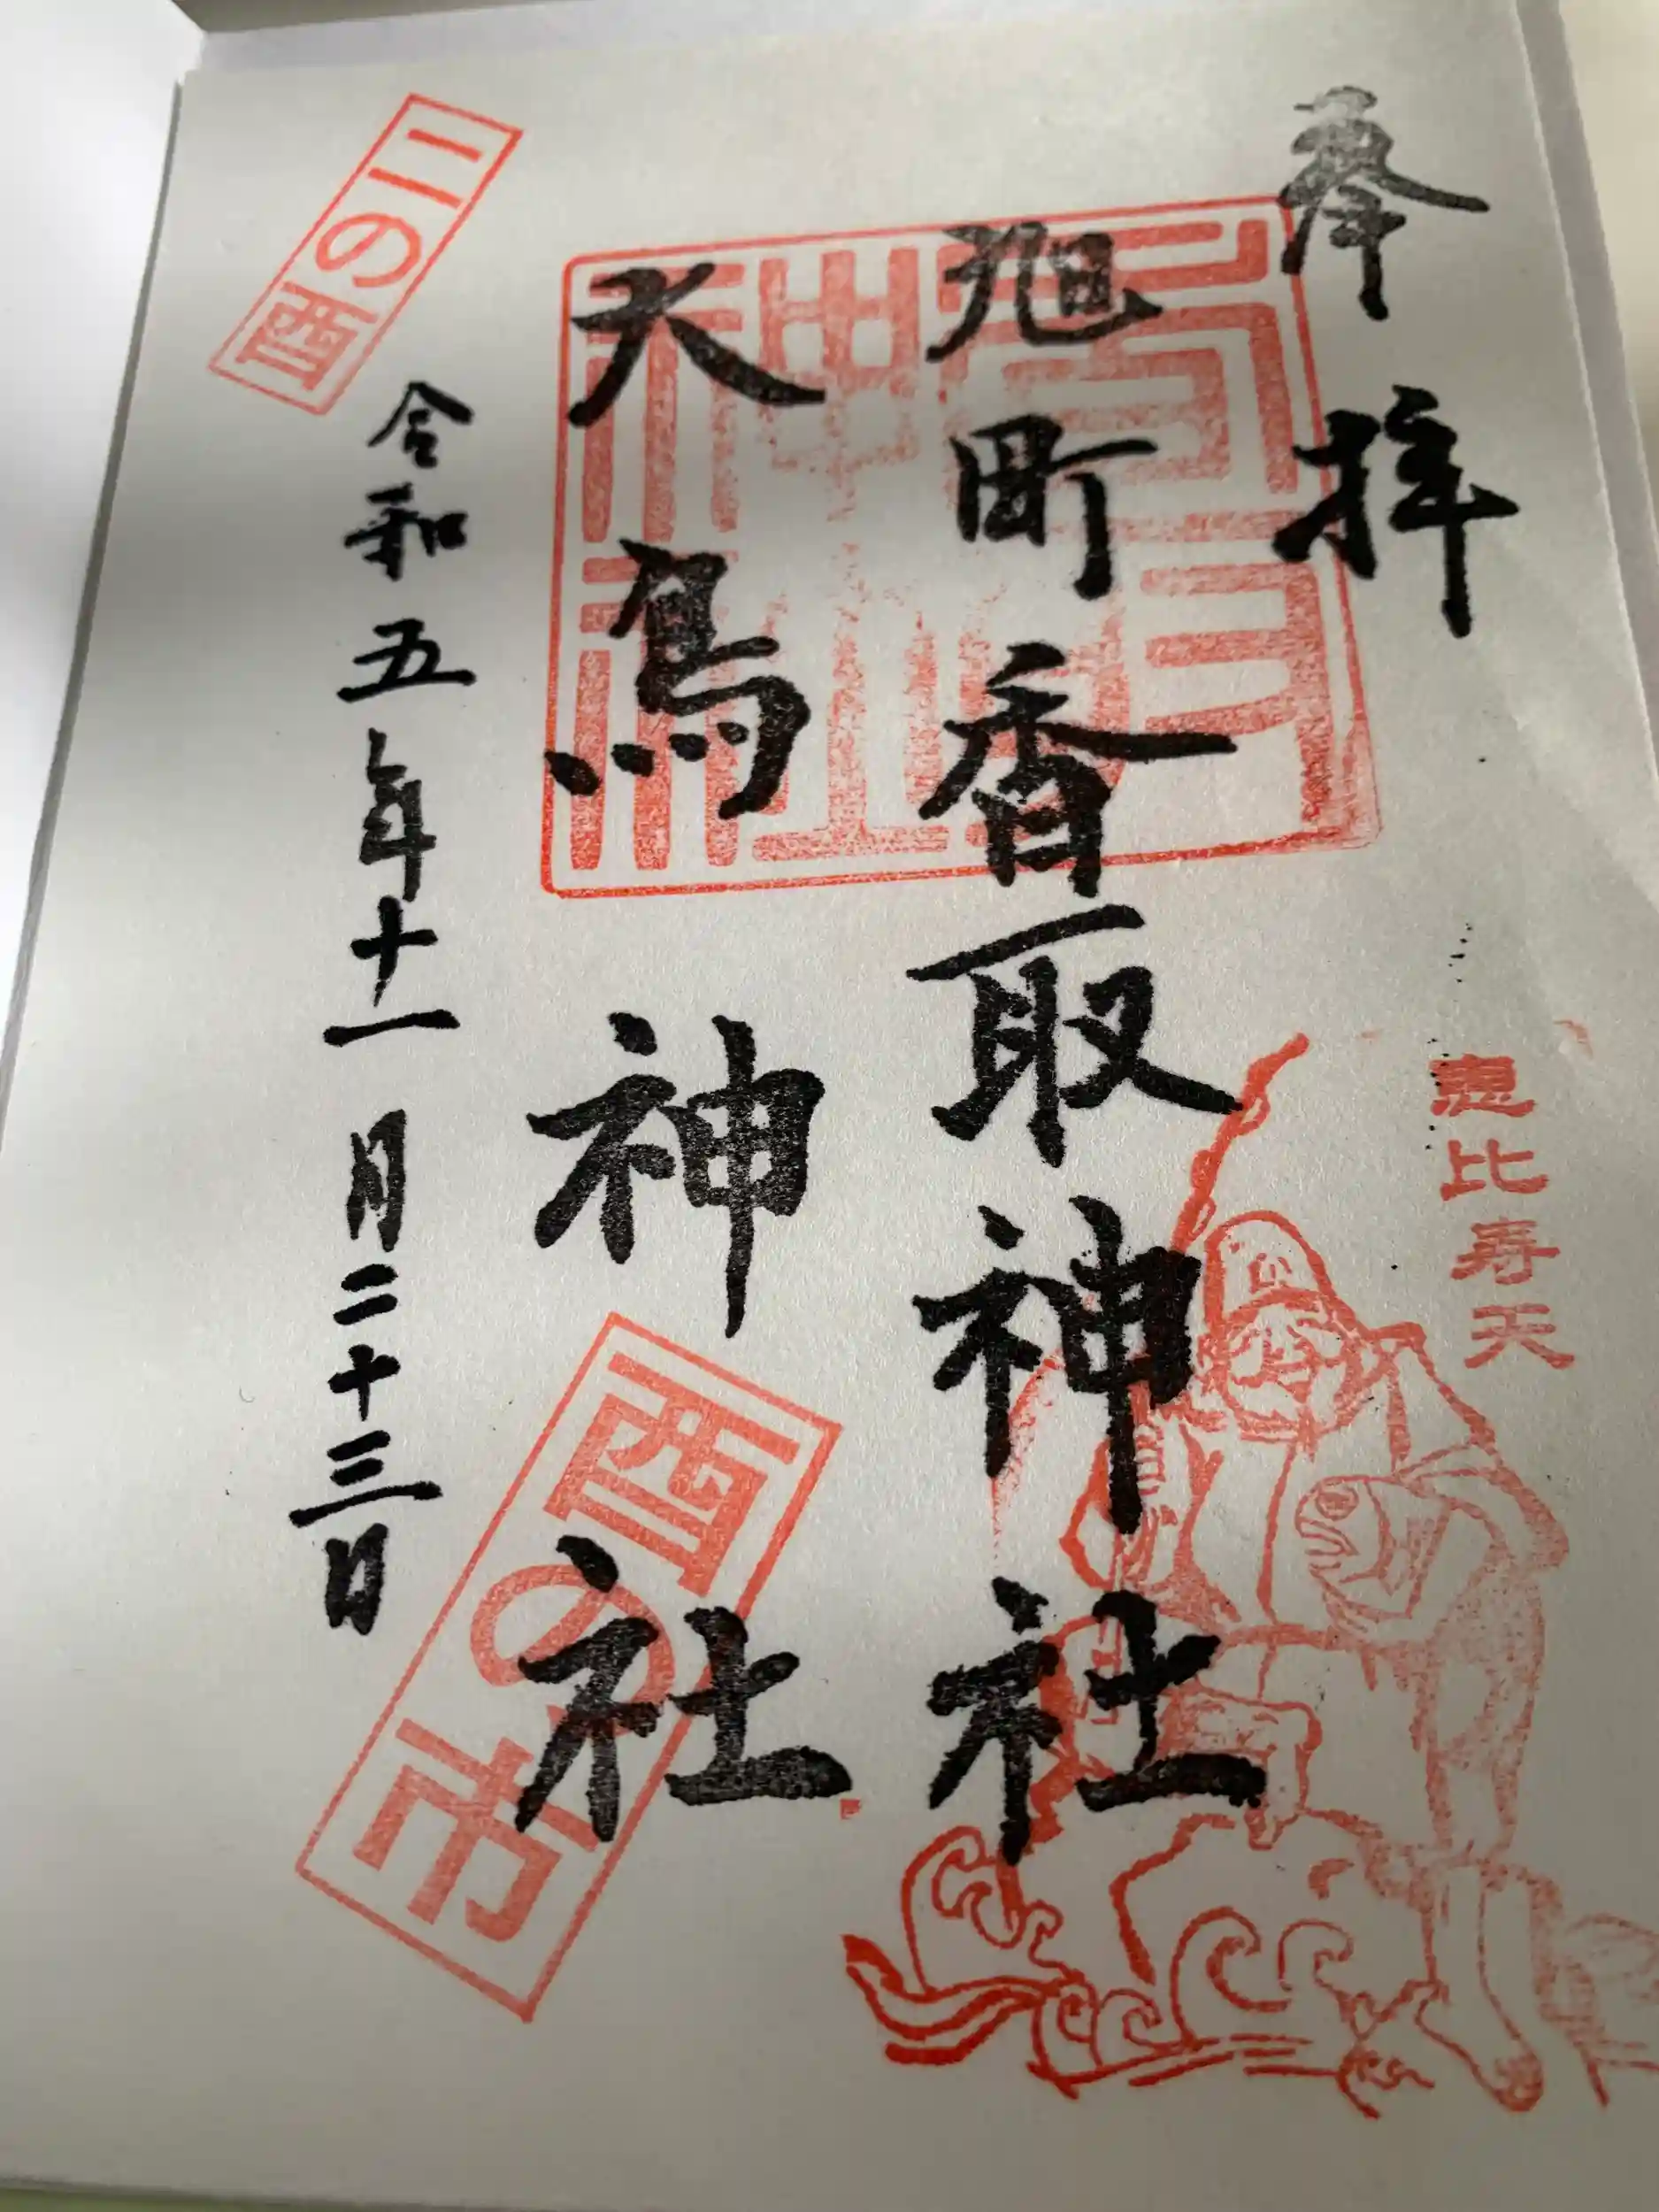 奉拝
恵比寿天
旭町香取神社
大鳥神社
酉の市
令和五年十一月二十三日
二の酉